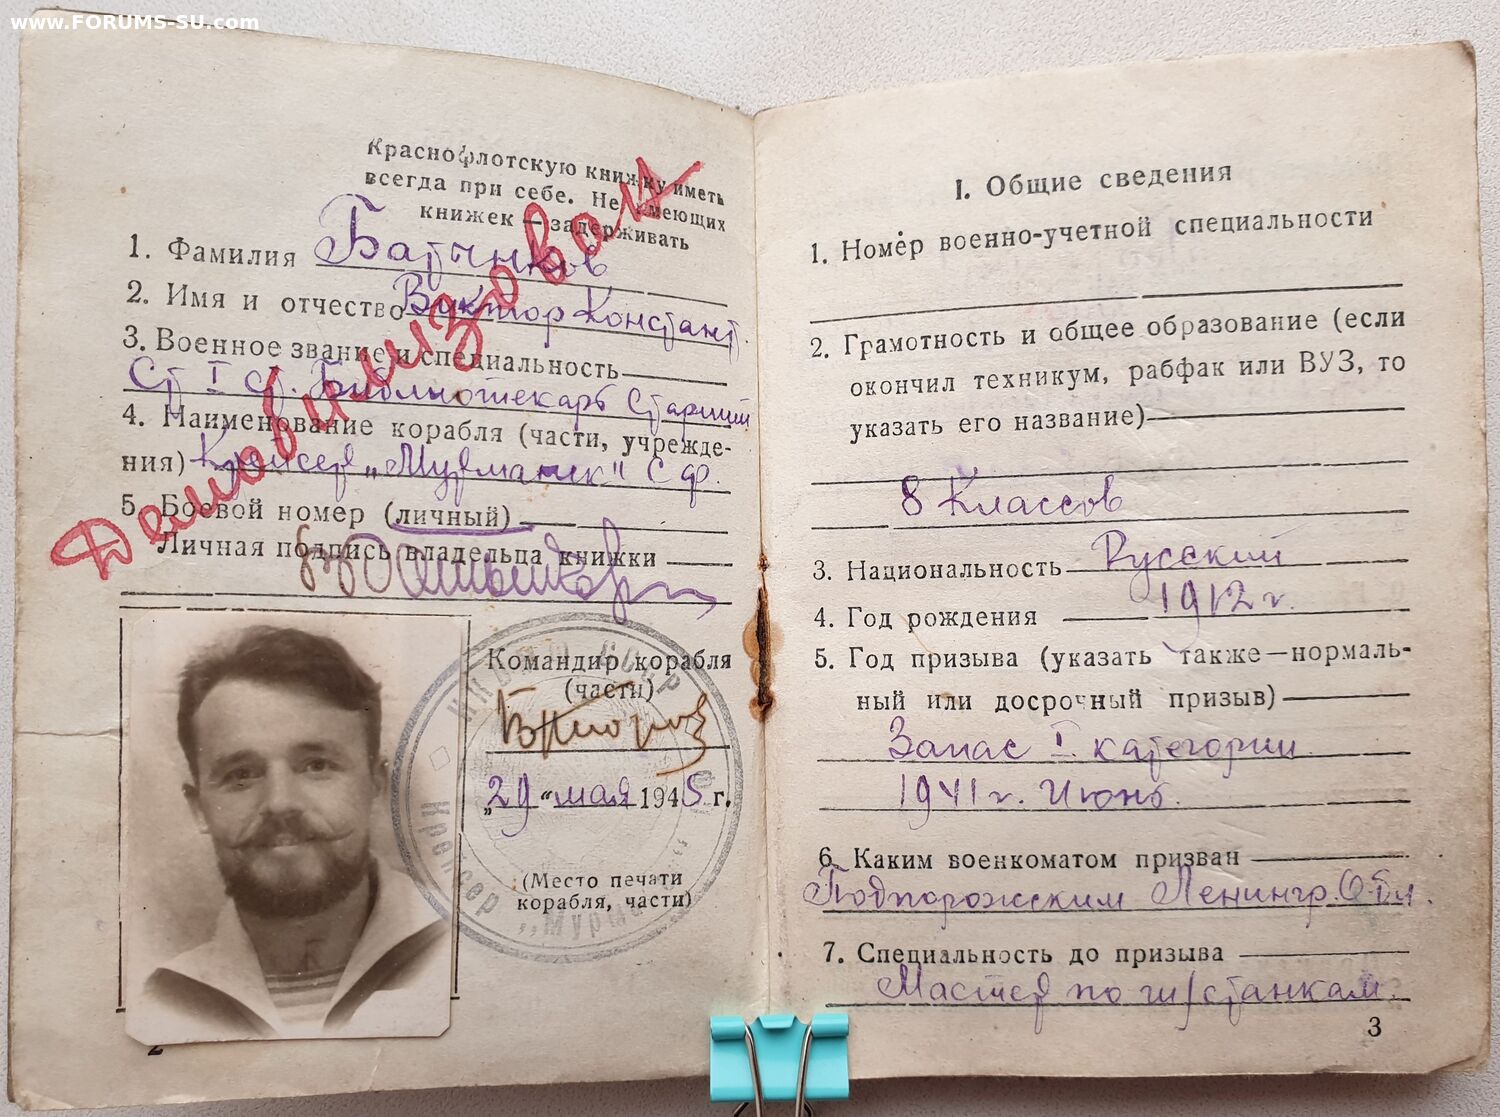 www.FORUMS-SU.com
Краснофлотскую книжку иметь
всегда при себе. Не имеющих
книжек — задерживать
Демобилизован
1. Фамилия Батынков
2. Имя и отчество Виктор Констант.
3. Военное звание и специальность
Ст I ст. Библиотекарь Старший
4. Наименование корабля (части, учрежде-
ния) Крейсер „Мурманск" СФ.
5. Боевой номер (личный)
Личная подпись владельца книжки
Командир корабля
(части)
„29" мая 1945 г.
(Место печати
корабля, части)
НКВМФ СССР
Крейсер „Мурманск"
2
I. Общие сведения
1. Номер военно-учетной специальности
2. Грамотность и общее образование (если
окончил техникум, рабфак или ВУЗ, то
указать его название)
8 Классов
3. Национальность Русский
4. Год рождения 1912 г.
5. Год призыва (указать также—нормаль-
ный или досрочный призыв)
Запас I категории
1941 г. Июнь.
6. Каким военкоматом призван
Подпорожским Ленингр. Обл.
7. Специальность до призыва
Мастер по ш/станкам.
3